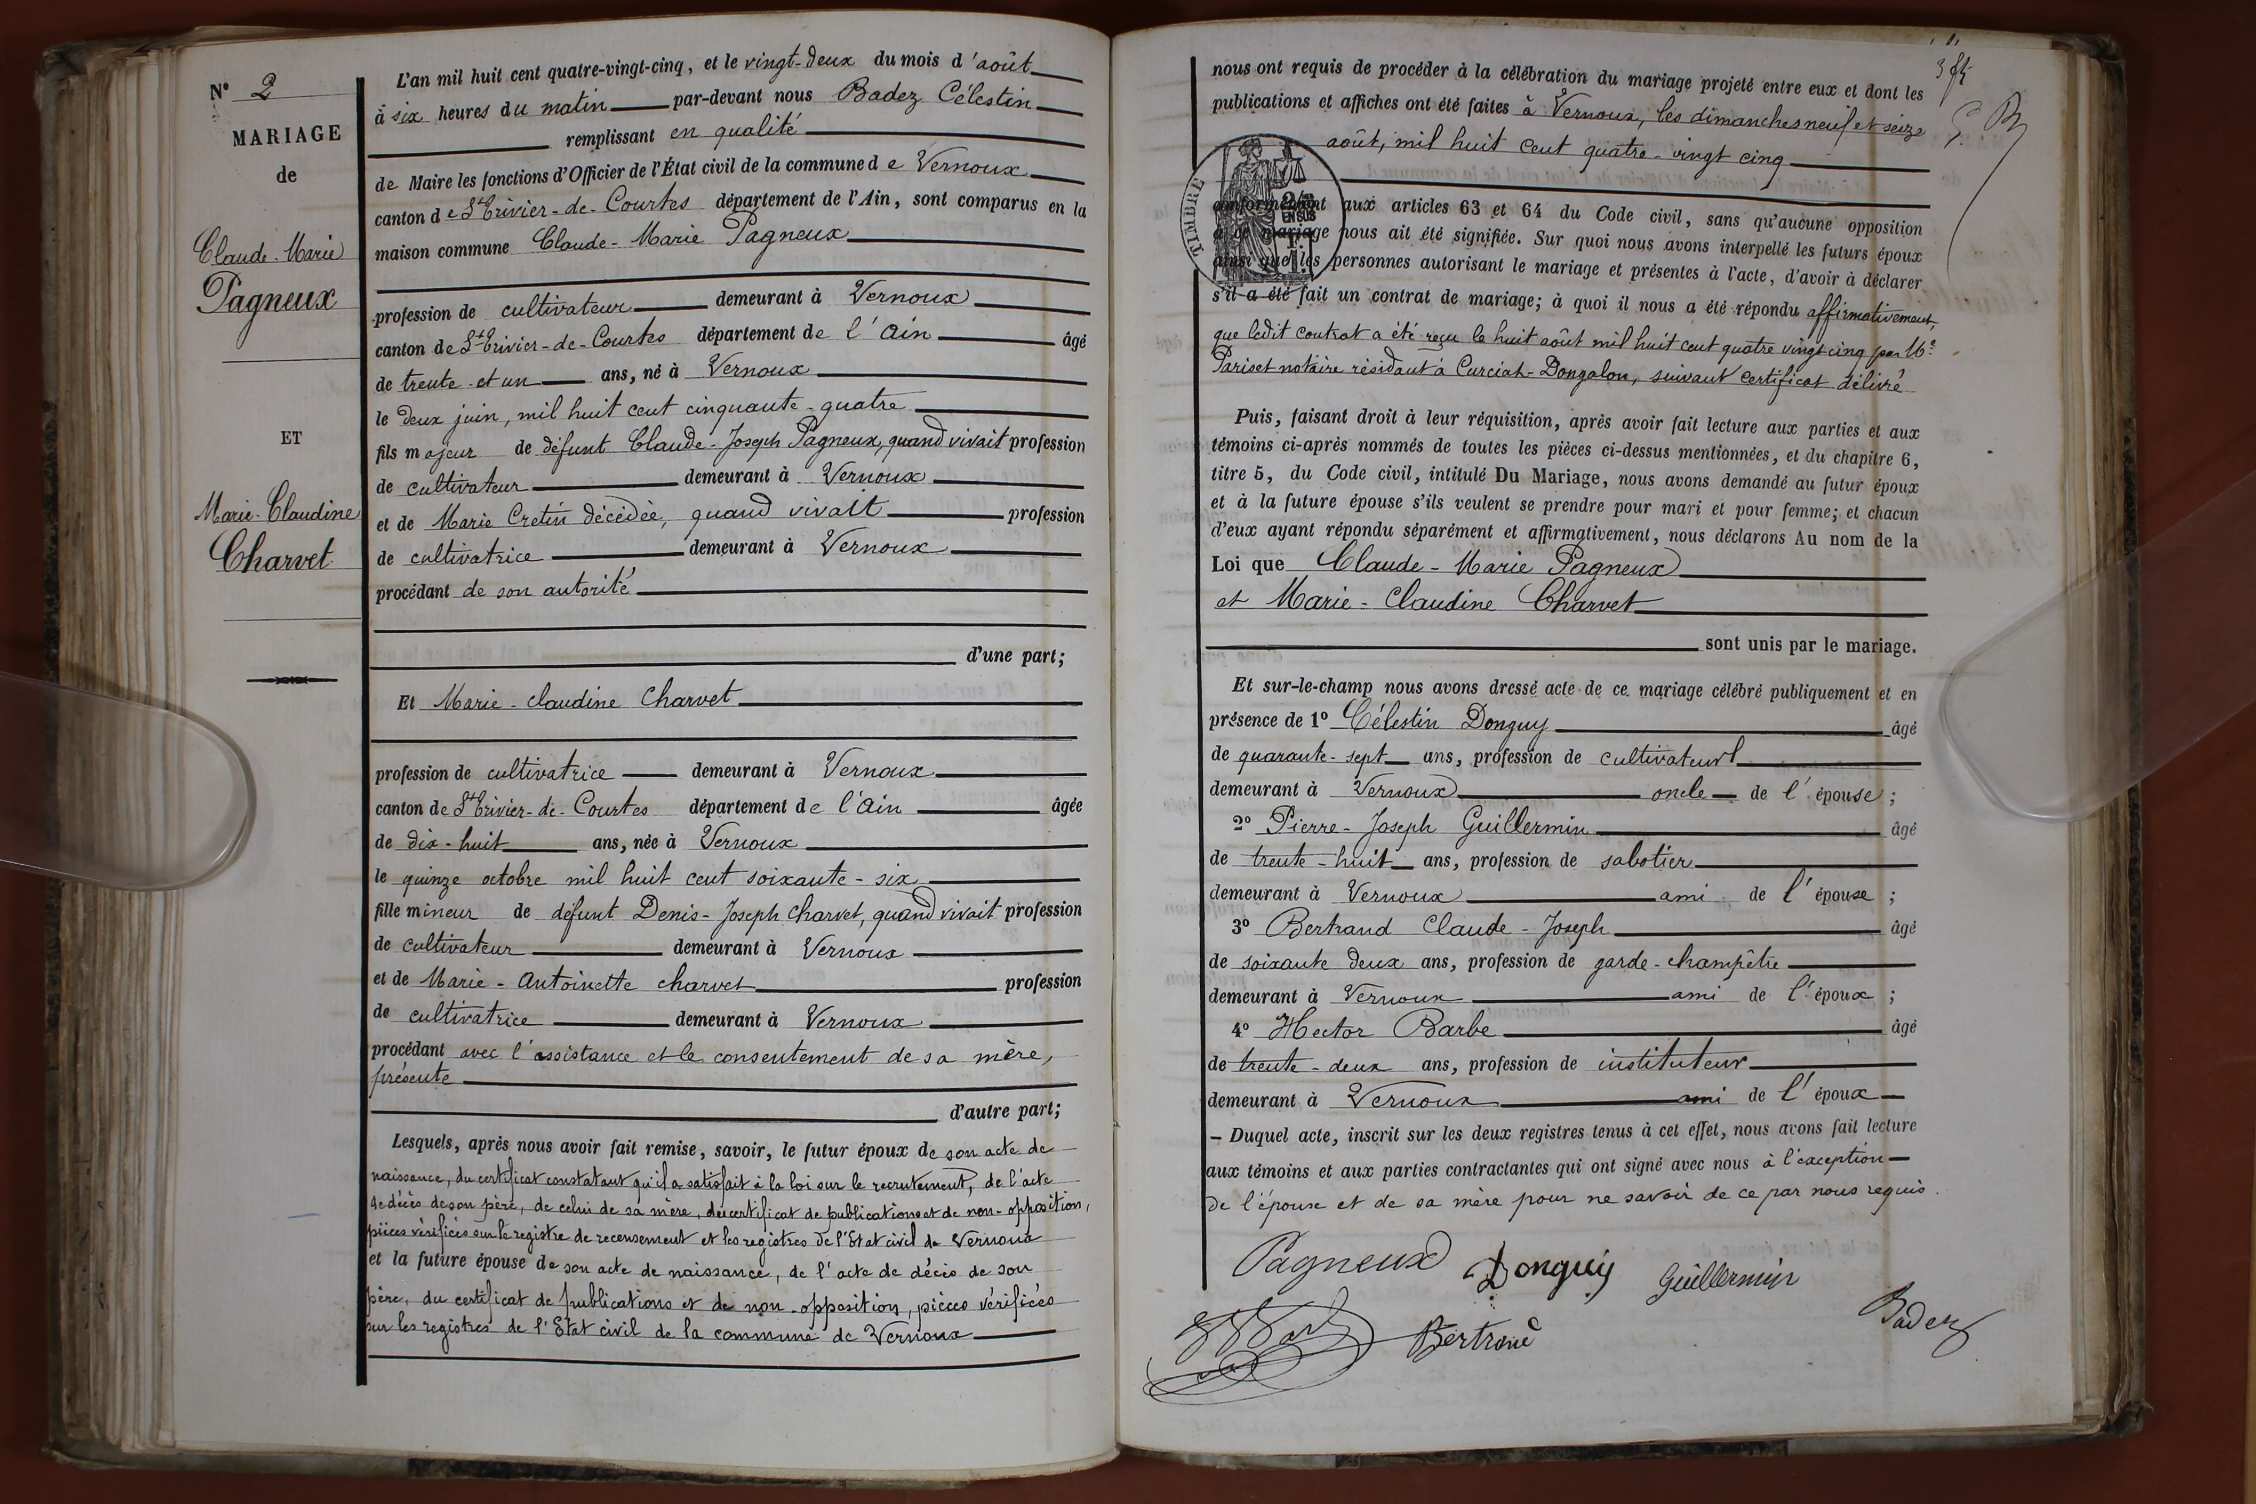 N° 2
MARIAGE
de
Claude-Marie
Pagneux
ET
Marie-Claudine
Charvet
L'an mil huit cent quatre-vingt-cinq, et le vingt-deux du mois d'août
à six heures du matin par-devant nous Badez Célestin
remplissant en qualité
de Maire les fonctions d'Officier de l'État civil de la commune de Vernoux
canton de St Trivier-de-Courtes département de l'Ain, sont comparus en la
maison commune Claude-Marie Pagneux
profession de cultivateur demeurant à Vernoux
canton de St Trivier-de-Courtes département de l'Ain âgé
de trente-et-un ans, né à Vernoux
le deux juin, mil huit cent cinquante-quatre
fils majeur de défunt Claude-Joseph Pagneux, quand vivait profession
de cultivateur demeurant à Vernoux
et de Marie Cretin décédée, quand vivait profession
de cultivatrice demeurant à Vernoux
procédant de son autorité
d'une part;
Et Marie-Claudine Charvet
profession de cultivatrice demeurant à Vernoux
canton de St Trivier-de-Courtes département de l'Ain âgée
de dix-huit ans, née à Vernoux
le quinze octobre mil huit cent soixante-six
fille mineur de défunt Denis-Joseph Charvet, quand vivait profession
de cultivateur demeurant à Vernoux
et de Marie-Antoinette Charvet profession
de cultivatrice demeurant à Vernoux
procédant avec l'assistance et le consentement de sa mère,
présente
d'autre part;
Lesquels, après nous avoir fait remise, savoir, le futur époux de son acte de
naissance, du certificat constatant qu'il a satisfait à la loi sur le recrutement, de l'acte
de décès de son père, de celui de sa mère, du certificat de publications et de non-opposition,
pièces vérifiées sur le registre de recensement et les registres de l'Etat civil de Vernoux
et la future épouse de son acte de naissance, de l'acte de décès de son
père, du certificat de publications et de non-opposition, pièces vérifiées
sur les registres de l'Etat civil de la commune de Vernoux
nous ont requis de procéder à la célébration du mariage projeté entre eux et dont les
publications et affiches ont été faites à Vernoux, les dimanches neuf et seize
août, mil huit cent quatre-vingt cinq
TIMBRE
2/10 EN SUS
conformément aux articles 63 et 64 du Code civil, sans qu'aucune opposition
à ce mariage nous ait été signifiée. Sur quoi nous avons interpellé les futurs époux
ainsi que les personnes autorisant le mariage et présentes à l'acte, d'avoir à déclarer
s'il a été fait un contrat de mariage; à quoi il nous a été répondu affirmativement,
que ledit contrat a été reçu le huit août mil huit cent quatre vingt cinq par Me
Pariset notaire résidant à Curciat-Dongalon, suivant certificat délivré
Puis, faisant droit à leur réquisition, après avoir fait lecture aux parties et aux
témoins ci-après nommés de toutes les pièces ci-dessus mentionnées, et du chapitre 6,
titre 5, du Code civil, intitulé Du Mariage, nous avons demandé au futur époux
et à la future épouse s'ils veulent se prendre pour mari et pour femme; et chacun
d'eux ayant répondu séparément et affirmativement, nous déclarons Au nom de la
Loi que Claude-Marie Pagneux
et Marie-Claudine Charvet
sont unis par le mariage.
Et sur-le-champ nous avons dressé acte de ce mariage célébré publiquement et en
présence de 1° Célestin Donguy âgé
de quarante-sept ans, profession de cultivateur
demeurant à Vernoux oncle de l'épouse;
2° Pierre-Joseph Guillermin âgé
de trente-huit ans, profession de sabotier
demeurant à Vernoux ami de l'épouse;
3° Bertrand Claude-Joseph âgé
de soixante deux ans, profession de garde-champêtre
demeurant à Vernoux ami de l'époux;
4° Hector Barbe âgé
de trente-deux ans, profession de instituteur
demeurant à Vernoux ami de l'époux
– Duquel acte, inscrit sur les deux registres tenus à cet effet, nous avons fait lecture
aux témoins et aux parties contractantes qui ont signé avec nous à l'exception
de l'épouse et de sa mère pour ne savoir de ce par nous requis.
Pagneux Donguy Guillermin
Badez
Bertrand